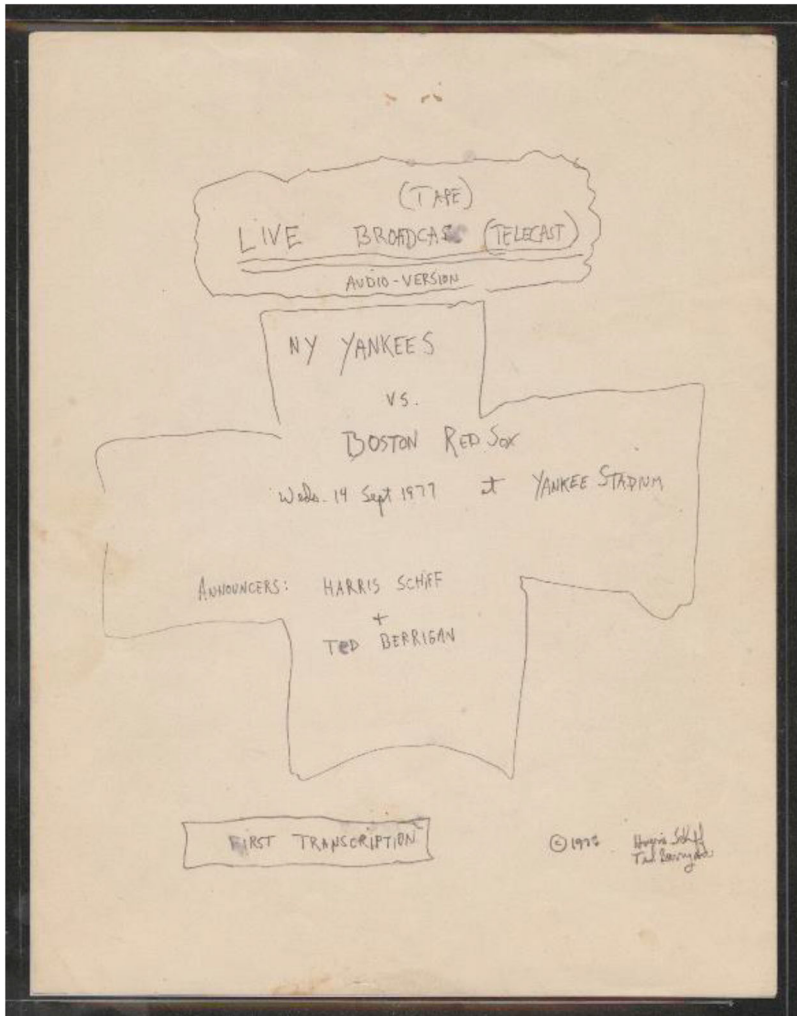 (TAPE)
LIVE BROADCAST (TELECAST)
AUDIO-VERSION
NY YANKEES
VS.
BOSTON RED SOX
Weds. 14 Sept 1977 at YANKEE STADIUM
ANNOUNCERS: HARRIS SCHIFF
+
TED BERRIGAN
FIRST TRANSCRIPTION
© Harris Schiff
Ted Berrigan